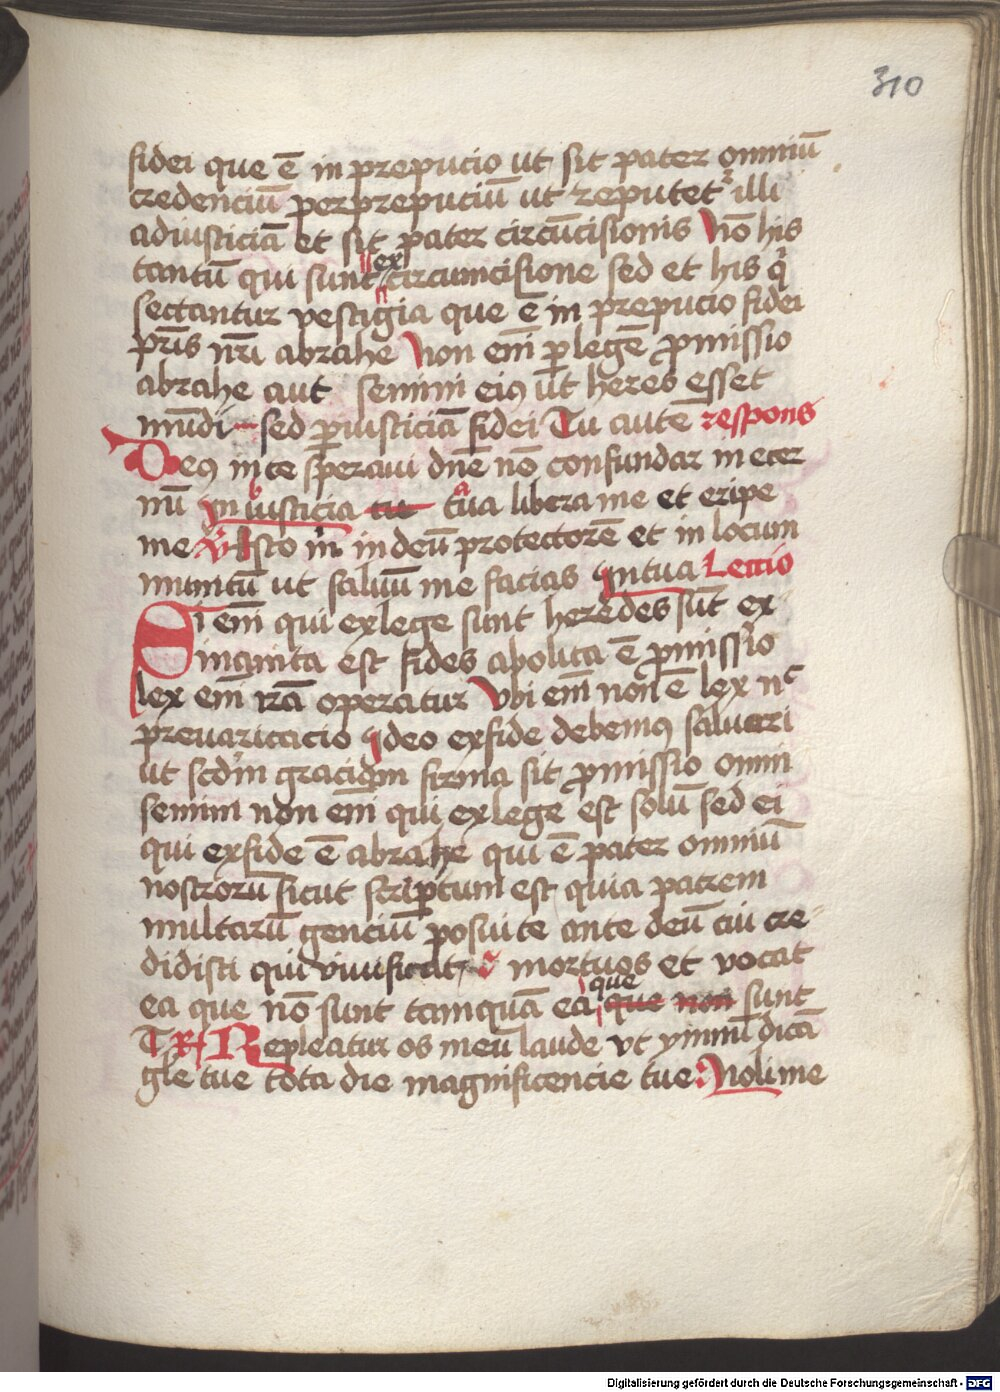 310
fidei que ē in prepucio ut sit pater omniū
credenciū per prepuciū ut reputet᷑ illi
adiusticiā et sit pater circūcisionis Nō his
tantū qui sunt ex circumcisione sed et his q̇
sectantur vestigia que ē in prepucio fidei
pr̄is nr̄i abrahe Non em̄ ꝑ legē ꝓmissio
abrahe aut semini eiꝯ ut heres esset
mūdi sed ꝑ iusticiā fidei Tu autē respons
Deꝯ in te speraui dn̄e nō confundar in eter
nū In iusticia tu tua libera me et eripe
me v̄ Esto m̄ in deū protectorē et in locum
munitū ut saluū me facias In tua Lectio
Si em̄ qui ex lege sunt heredes sūt ex
inanita est fides abolita ē ꝓmissio
lex em̄ irā operatur Vbi em̄ non ē lex nᶜ
preuaricacio Ideo ex fide debemꝯ saluari
ut scd̄m graciam firma sit ꝓmissio omni
semini non em̄ qui ex lege est solū sed ei
qui ex fide ē abrahe qui ē pater omniū
nostrorū sicut scriptum est quia patrem
multarū genciū posui te ante deū cui cre
didisti qui viuificat mortuos et vocat
ea que nō sunt tamquā ea que que non sunt
Tu R Repleatur os meū laude vt ymnū dicā
gle tue tota die magnificencie tue Noli me
Digitalisierung gefördert durch die Deutsche Forschungsgemeinschaft - DFG